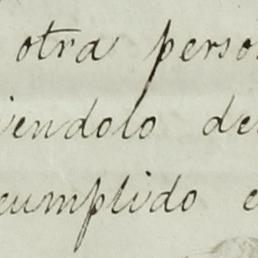 otra perso
iendolo de
cumplido e